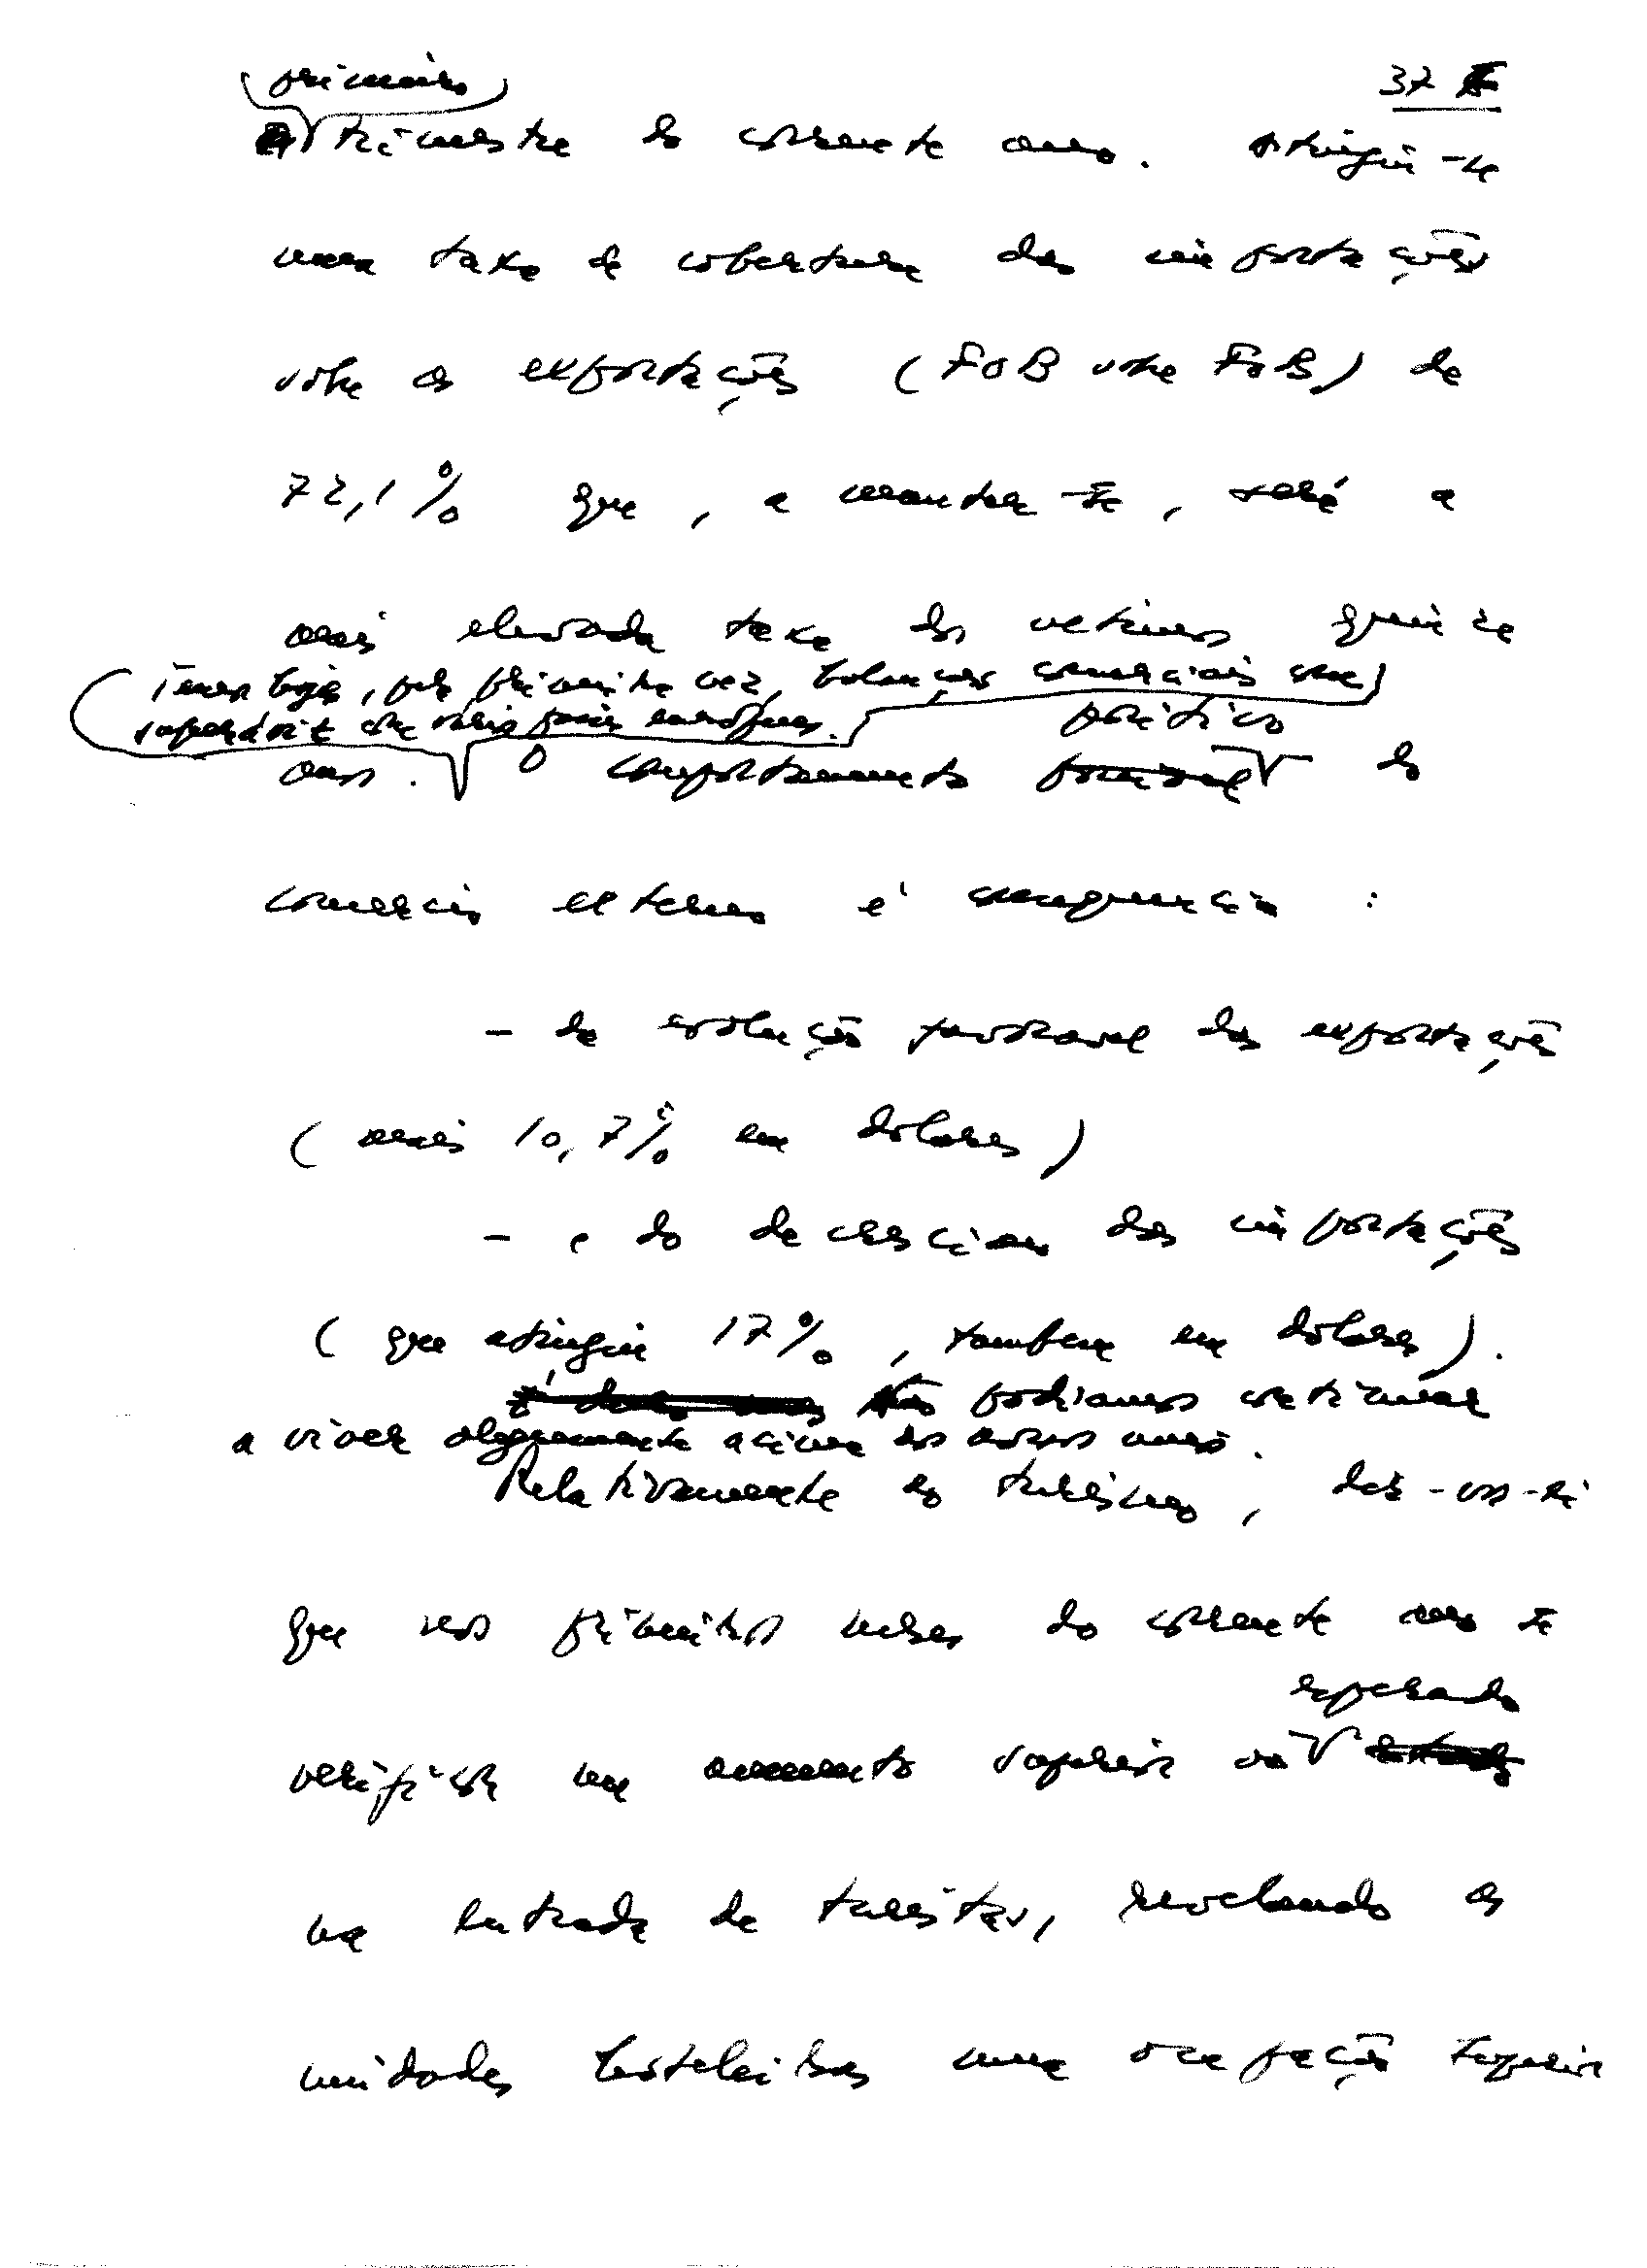 37
primeiro
trimestre do corrente ano. Atingiu-se
uma taxa de cobertura das importações
sobre as exportações (FOB sobre FOB) de
72,1% que, a manter-se, será a
mais elevada taxa dos últimos quinze
Temos hoje, pela primeira vez, balanças comerciais com
superávit com vários países europeus.
anos. O comportamento positivo do
comércio externo é consequência:
- da evolução favorável das exportações
(mais 10,7% em dólares)
- e do decréscimo das importações
(que atingiu 17%, também em dólares).
Não podíamos continuar
a viver alegremente acima dos nossos meios.
Relativamente ao turismo, dir-vos-ei
que nos primeiros meses do corrente ano se
esperado
verificou um aumento superior ao
na entrada de turistas, revelando as
unidades hoteleiras uma ocupação superior